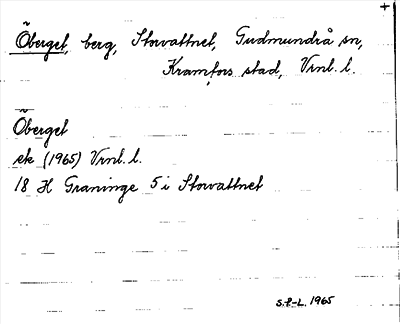 Öberget, berg, Storvattnet, Gudmundrå sn,
Kramfors stad, Vrnl. l.
Öberget
ek (1965) Vrnl. l.
18 H Graninge 5 i Storvattnet
S.P-L. 1965